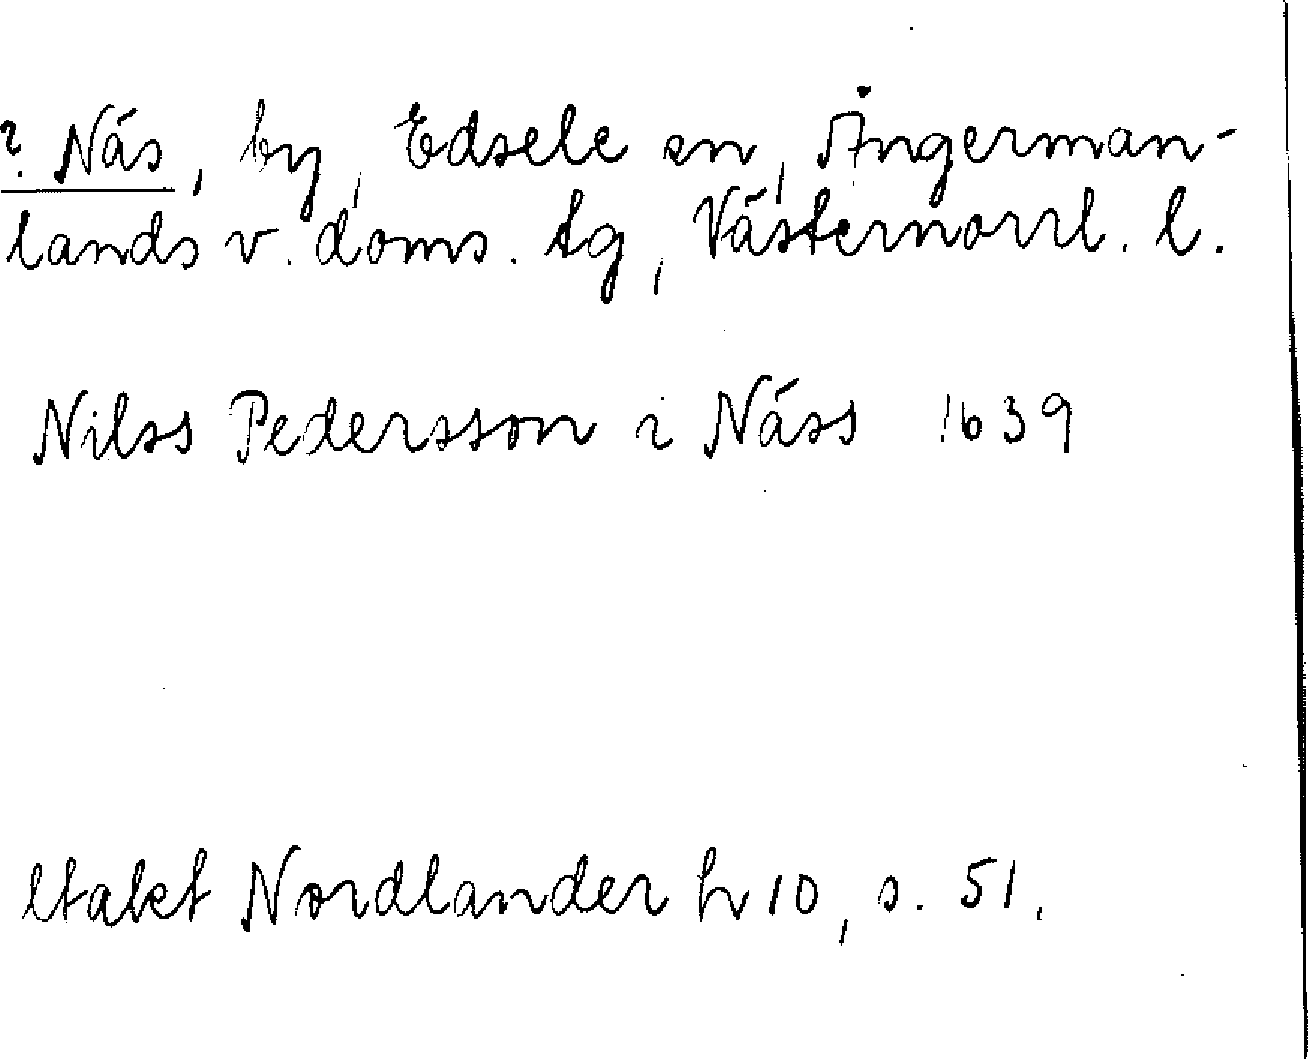 ? Näs, by, Edsele sn, Ångerman-
lands v. doms. tg, Västernorrl. l.
Nilss Pedersson i Näss 1639
Utakt Nordlander h 10, s. 51.